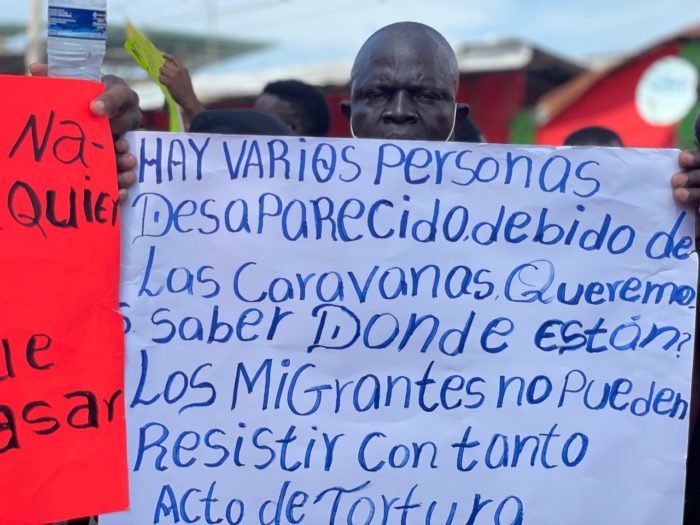 Na-
QUIER
ue
asar
HAY VARIOS PERSONAS
DESAPARECIDO, debido de
Las CARAVANAS, QUEREMO
S SABER DONDE están?
Los MiGRANTES no PUEDEN
RESISTIR CON tanto
Acto de TORTURA